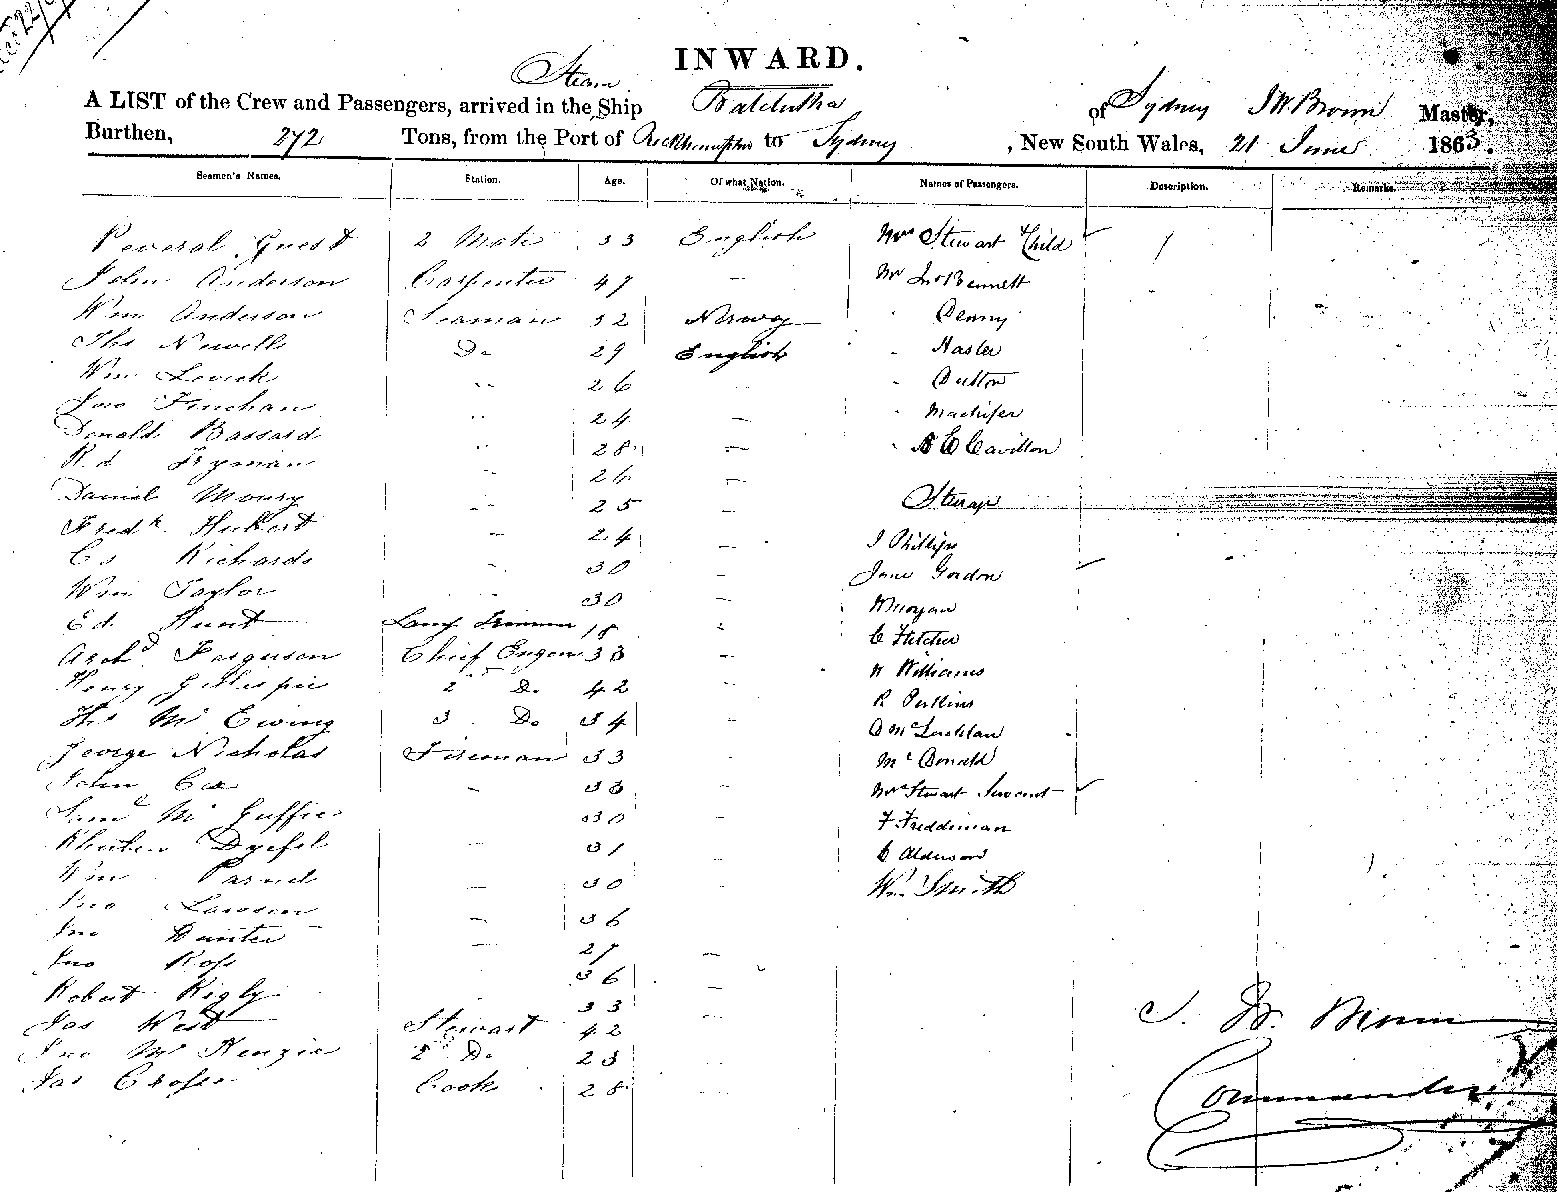 INWARD.
Steam
A LIST of the Crew and Passengers, arrived in the Ship Balclutha of Sydney J W Brown Master,
Burthen, 272 Tons, from the Port of Rockhampton to Sydney, New South Wales, 21 June 1863.
Seamen's Names. Station. Age. Of what Nation. Names of Passengers. Description. Remarks.
Peveral Guest 2 Mate 33 English Mrs Stewart & Child 1
John Anderson Carpenter 47 — Mr Jno Bennett
Wm Anderson Seaman 32 Norway " Denny
Ths Newells Do 29 English " Hasler
Wm Levick " 26 — " Dutton
Jno Finchan " 24 — "
Donald Bassard " 28 — "
Rd Fryman " 26 —
Daniel Moury " 25 —
Fredk Hubert " 24 — J Phillips
Cs Richards " 30 — Jane Gordon
Wm Taylor " 30 — Morgan
Ed. Hunt Lamp Trimmer 18 " C Fletcher
Archd Ferguson Chief Engen 33 W Williams
Henry Gillespie 2 Do 42 R Perkins
Ths Mc Ewing 3 Do 34 D McLachlan
George Nicholas Fireman 33 McDonald
John Cox — 33 Mrs Stewart Servant
Saml Mc Guffie 30 F Freddiman
31 C Alderson
Wm Parnel — 30 Wm Smith
Jno Lawson — 36
Jno Hunter — 27 —
Jno Ross 36 —
Robert Rigby 33 —
Jas West Stewart 42 —
Jno Mc Kenzie 2 Do 23 —
Jas Croser Cook 28 —
J. W. Brown
Commander